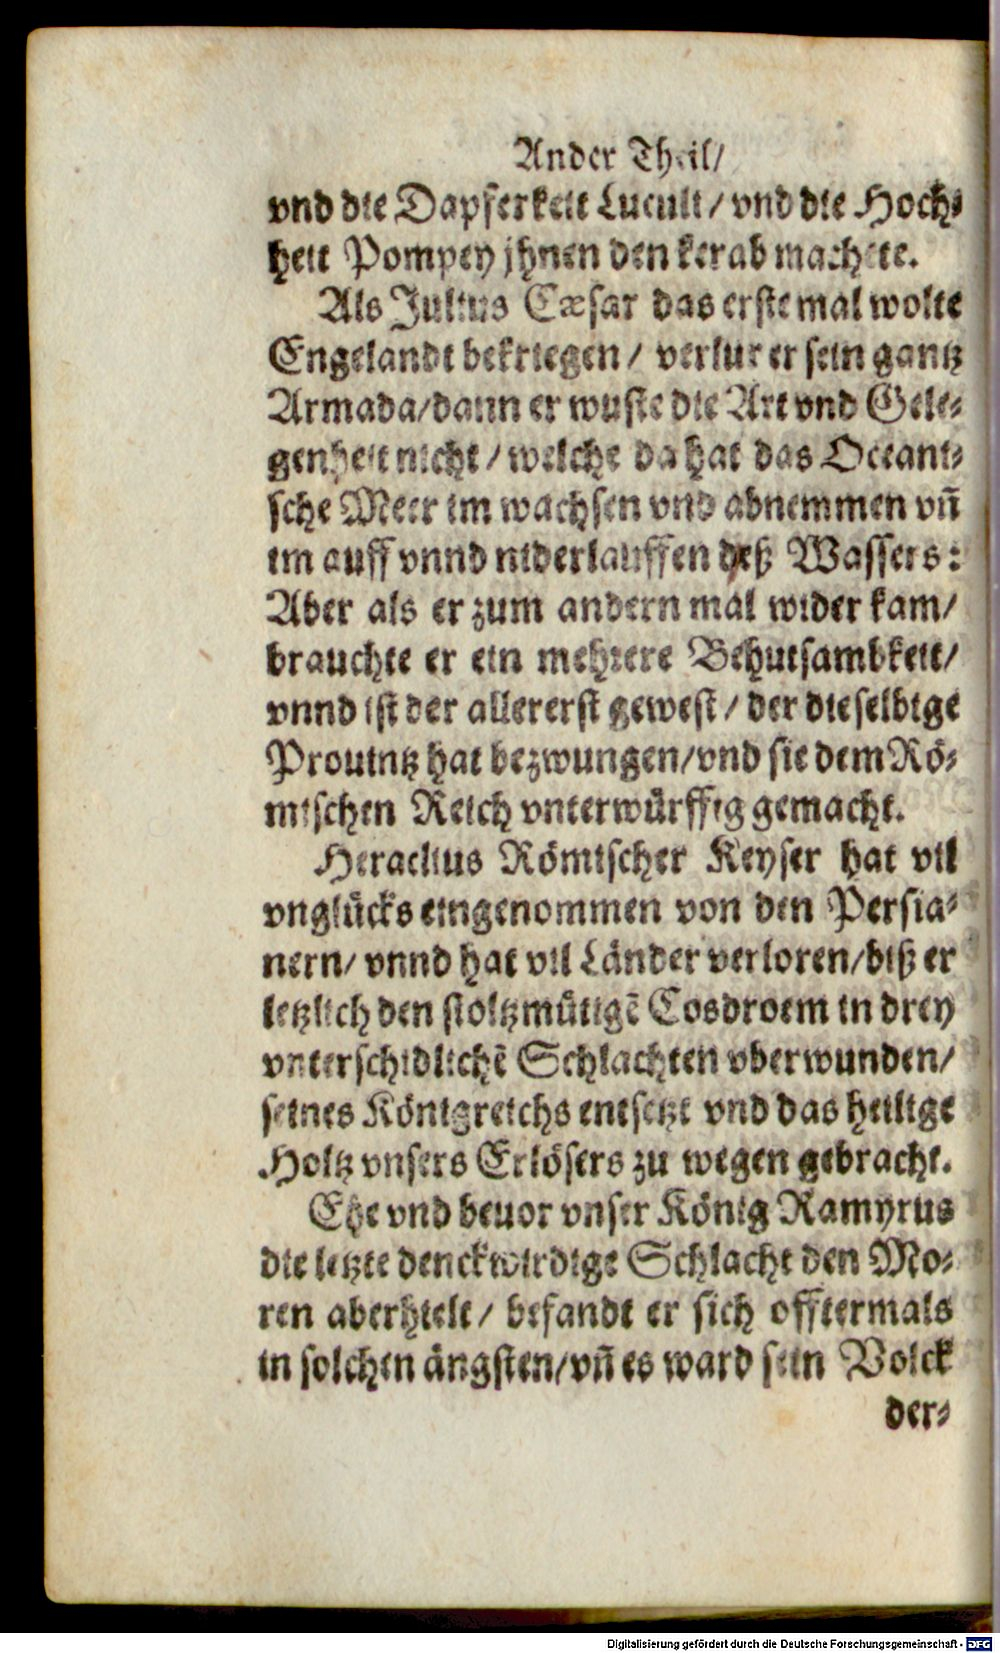 Ander Theil/
vnd die Dapferkeit Luculi/ vnd die Hoch-
heit Pompey jhnen den kerab machete.
Als Julius Cæsar das erste mal wolte
Engelandt bekriegen/ verlur er sein gantz
Armada/dann er wuste die Art vnd Gele-
genheit nicht/ welche da hat das Oceani-
sche Meer im wachsen vnd abnemmen vñ
im auff vnnd niderlauffen deß Wassers:
Aber als er zum andern mal wider kam/
brauchte er ein mehrere Behutsambkeit/
vnnd ist der allererst gewest/ der dieselbige
Prouintz hat bezwungen/vnd sie dem Rö-
mischen Reich vnterwürffig gemacht.
Heraclius Römischer Keyser hat vil
vnglücks eingenommen von den Persia-
nern/ vnnd hat vil Länder verloren/biß er
letzlich den stoltzmütigẽ Cosdroem in drey
vnterschidlichẽ Schlachten vberwunden/
seines Königreichs entsetzt vnd das heilige
Holtz vnsers Erlösers zu wegen gebracht.
Ehe vnd beuor vnser König Ramyrus
die letzte denckwirdige Schlacht den Mo-
ren aberhielt/ befandt er sich offtermals
in solchen ängsten/vñ es ward sein Volck
der-
Digitalisierung gefördert durch die Deutsche Forschungsgemeinschaft - DFG